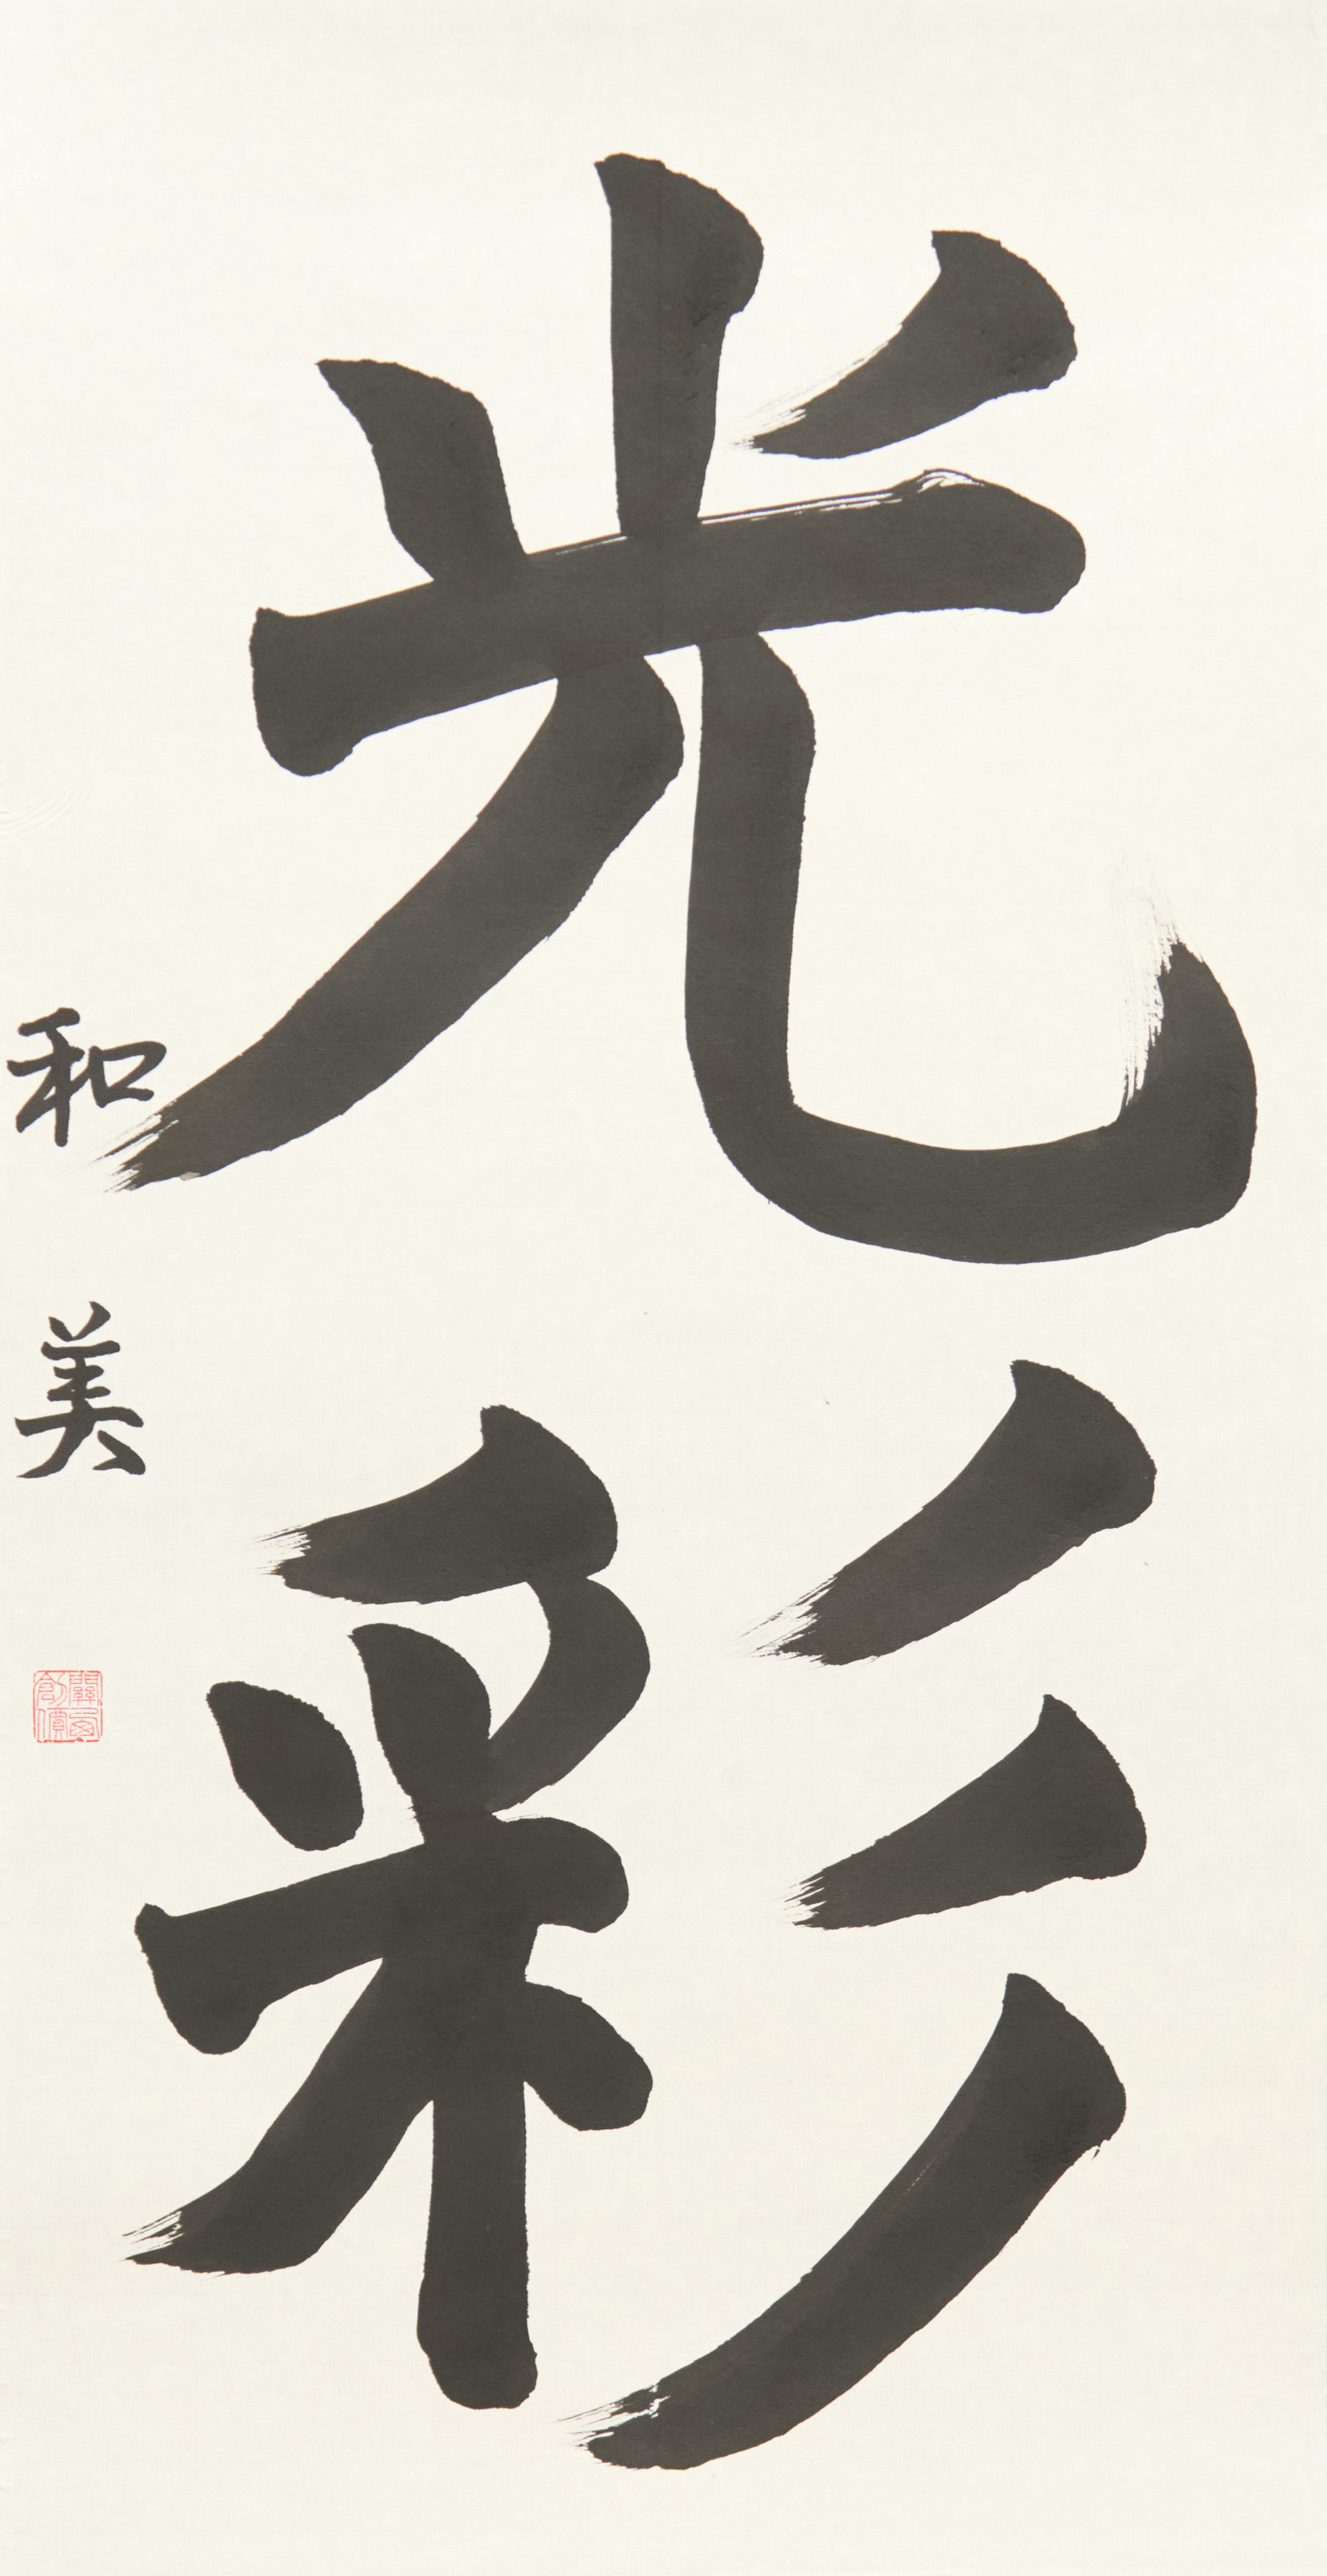 光彩
和美